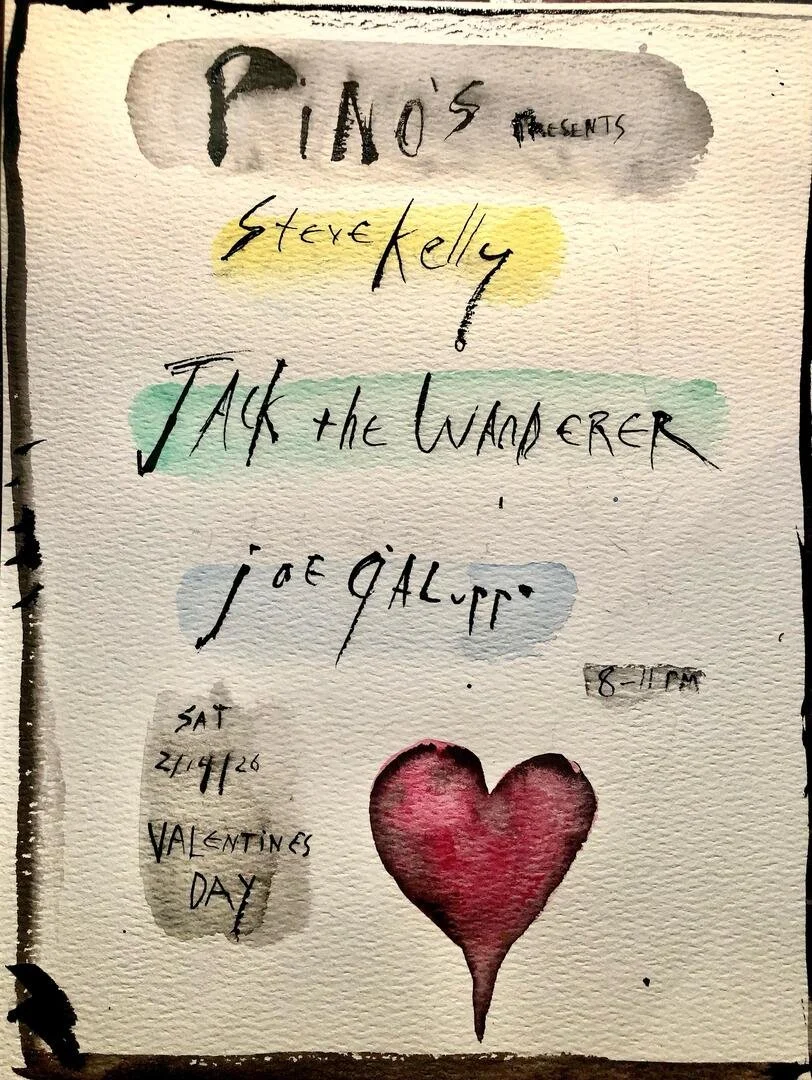 PiNO'S PRESENTS
Steve Kelly
JACK the WANDERER
jOE GALuppo
8-11 PM
SAT
2/14/26
VALENTiNES
DAY